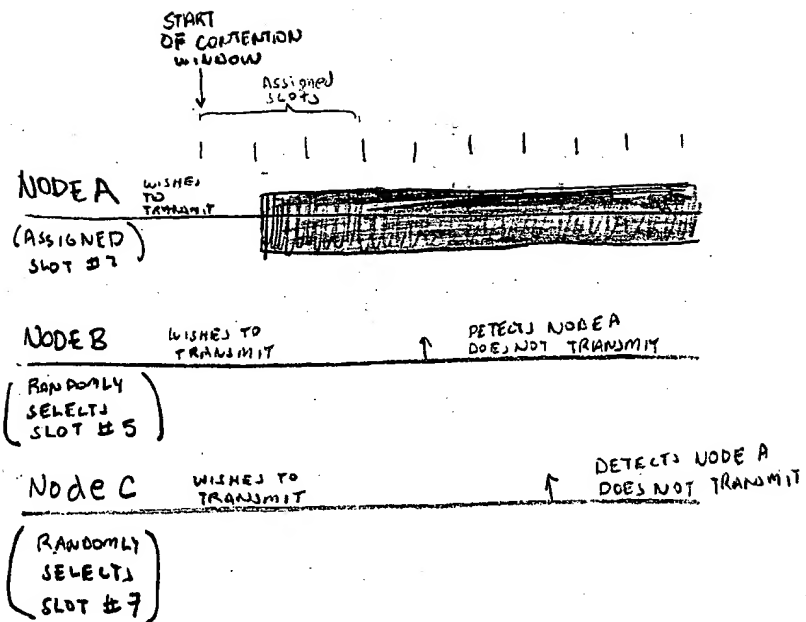 START
OF CONTENTION
WINDOW
Assigned
SLOTS
NODE A
WISHES
TO
TRANSMIT
(ASSIGNED)
SLOT
NODE B
WISHES TO
TRANSMIT
DETECTS NODE A
DOES NOT TRANSMIT
(RANDOMLY
SELECTS
SLOT #5)
Node C
WISHES TO
TRANSMIT
DETECTS NODE A
DOES NOT TRANSMIT
(RANDOMLY
SELECTS
SLOT #7)